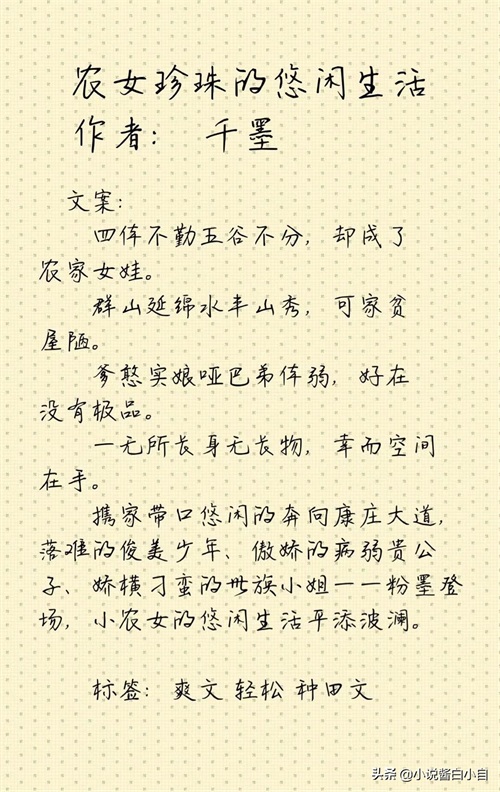 农女珍珠的悠闲生活
作者: 千墨
文案:
四体不勤五谷不分, 却成了
农家女娃。
群山延绵水丰山秀, 可家贫
屋陋。
爹憨实娘哑巴弟体弱, 好在
没有极品。
一无所长身无长物, 幸而空间
在手。
携家带口悠闲的奔向康庄大道,
落难的俊美少年、傲娇的病弱贵公
子、娇横刁蛮的世族小姐一一粉墨登
场, 小农女的悠闲生活平添波澜。
标签: 爽文 轻松 种田文
头条 @小说酱白小自